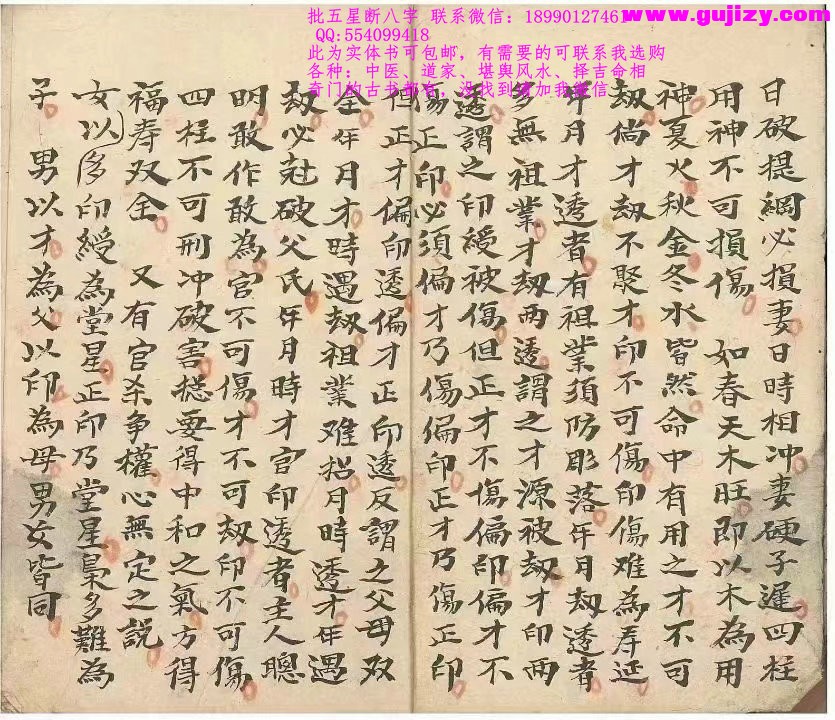 批五星断八字 联系微信：1899012746
www.gujizy.com
QQ:554099418
此为实体书可包邮，有需要的可联系我选购
各种：中医、道家、堪舆风水、择吉命相
奇门的古书都有，没找到请加我微信
日破提綱必損妻日時相冲妻硬子遲四柱
用神不可損傷 如春天木旺即以木為用
神夏火秋金冬水皆然命中有用之才不可
劫倘才劫不聚才印不可傷印傷难為寿延
年月才透者有祖業須防彫落年月劫透者
多無祖業才劫两透謂之才源被劫才印两
透謂之印綬被傷但正才不傷偏印偏才不
傷正印必須偏才乃傷偏印正才乃傷正印
但正才偏印透偏才正印透反謂之父母双
全年月才時遇劫祖業难招月時透才年遇
劫必尅破父氏年月時才官印透者主人聰
明敢作敢為官不可傷才不可劫印不可傷
四柱不可刑冲破害揔要得中和之氣方得
福寿双全 又有官杀争權心無定之説
女以多印綬為堂星正印乃堂星梟多難為
子 男以才為父以印為母男女皆同